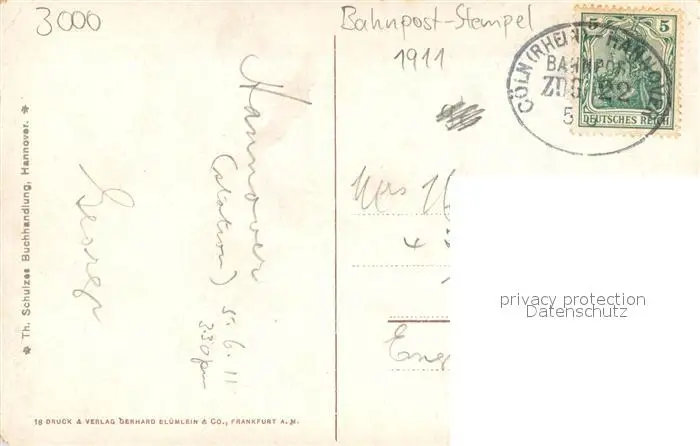 3000
Bahnpost-Stempel
1911
5 5
DEUTSCHES REICH
CÖLN (RHEIN) HANNOVER
BAHNPOST
ZUG 22
5
Hannover
(station)
5.6.11
3.30pm
George
Mrs
Eng
privacy protection
Datenschutz
* Th. Schulzes Buchhandlung, Hannover. *
18 DRUCK & VERLAG GERHARD BLÜMLEIN & CO., FRANKFURT A. M.